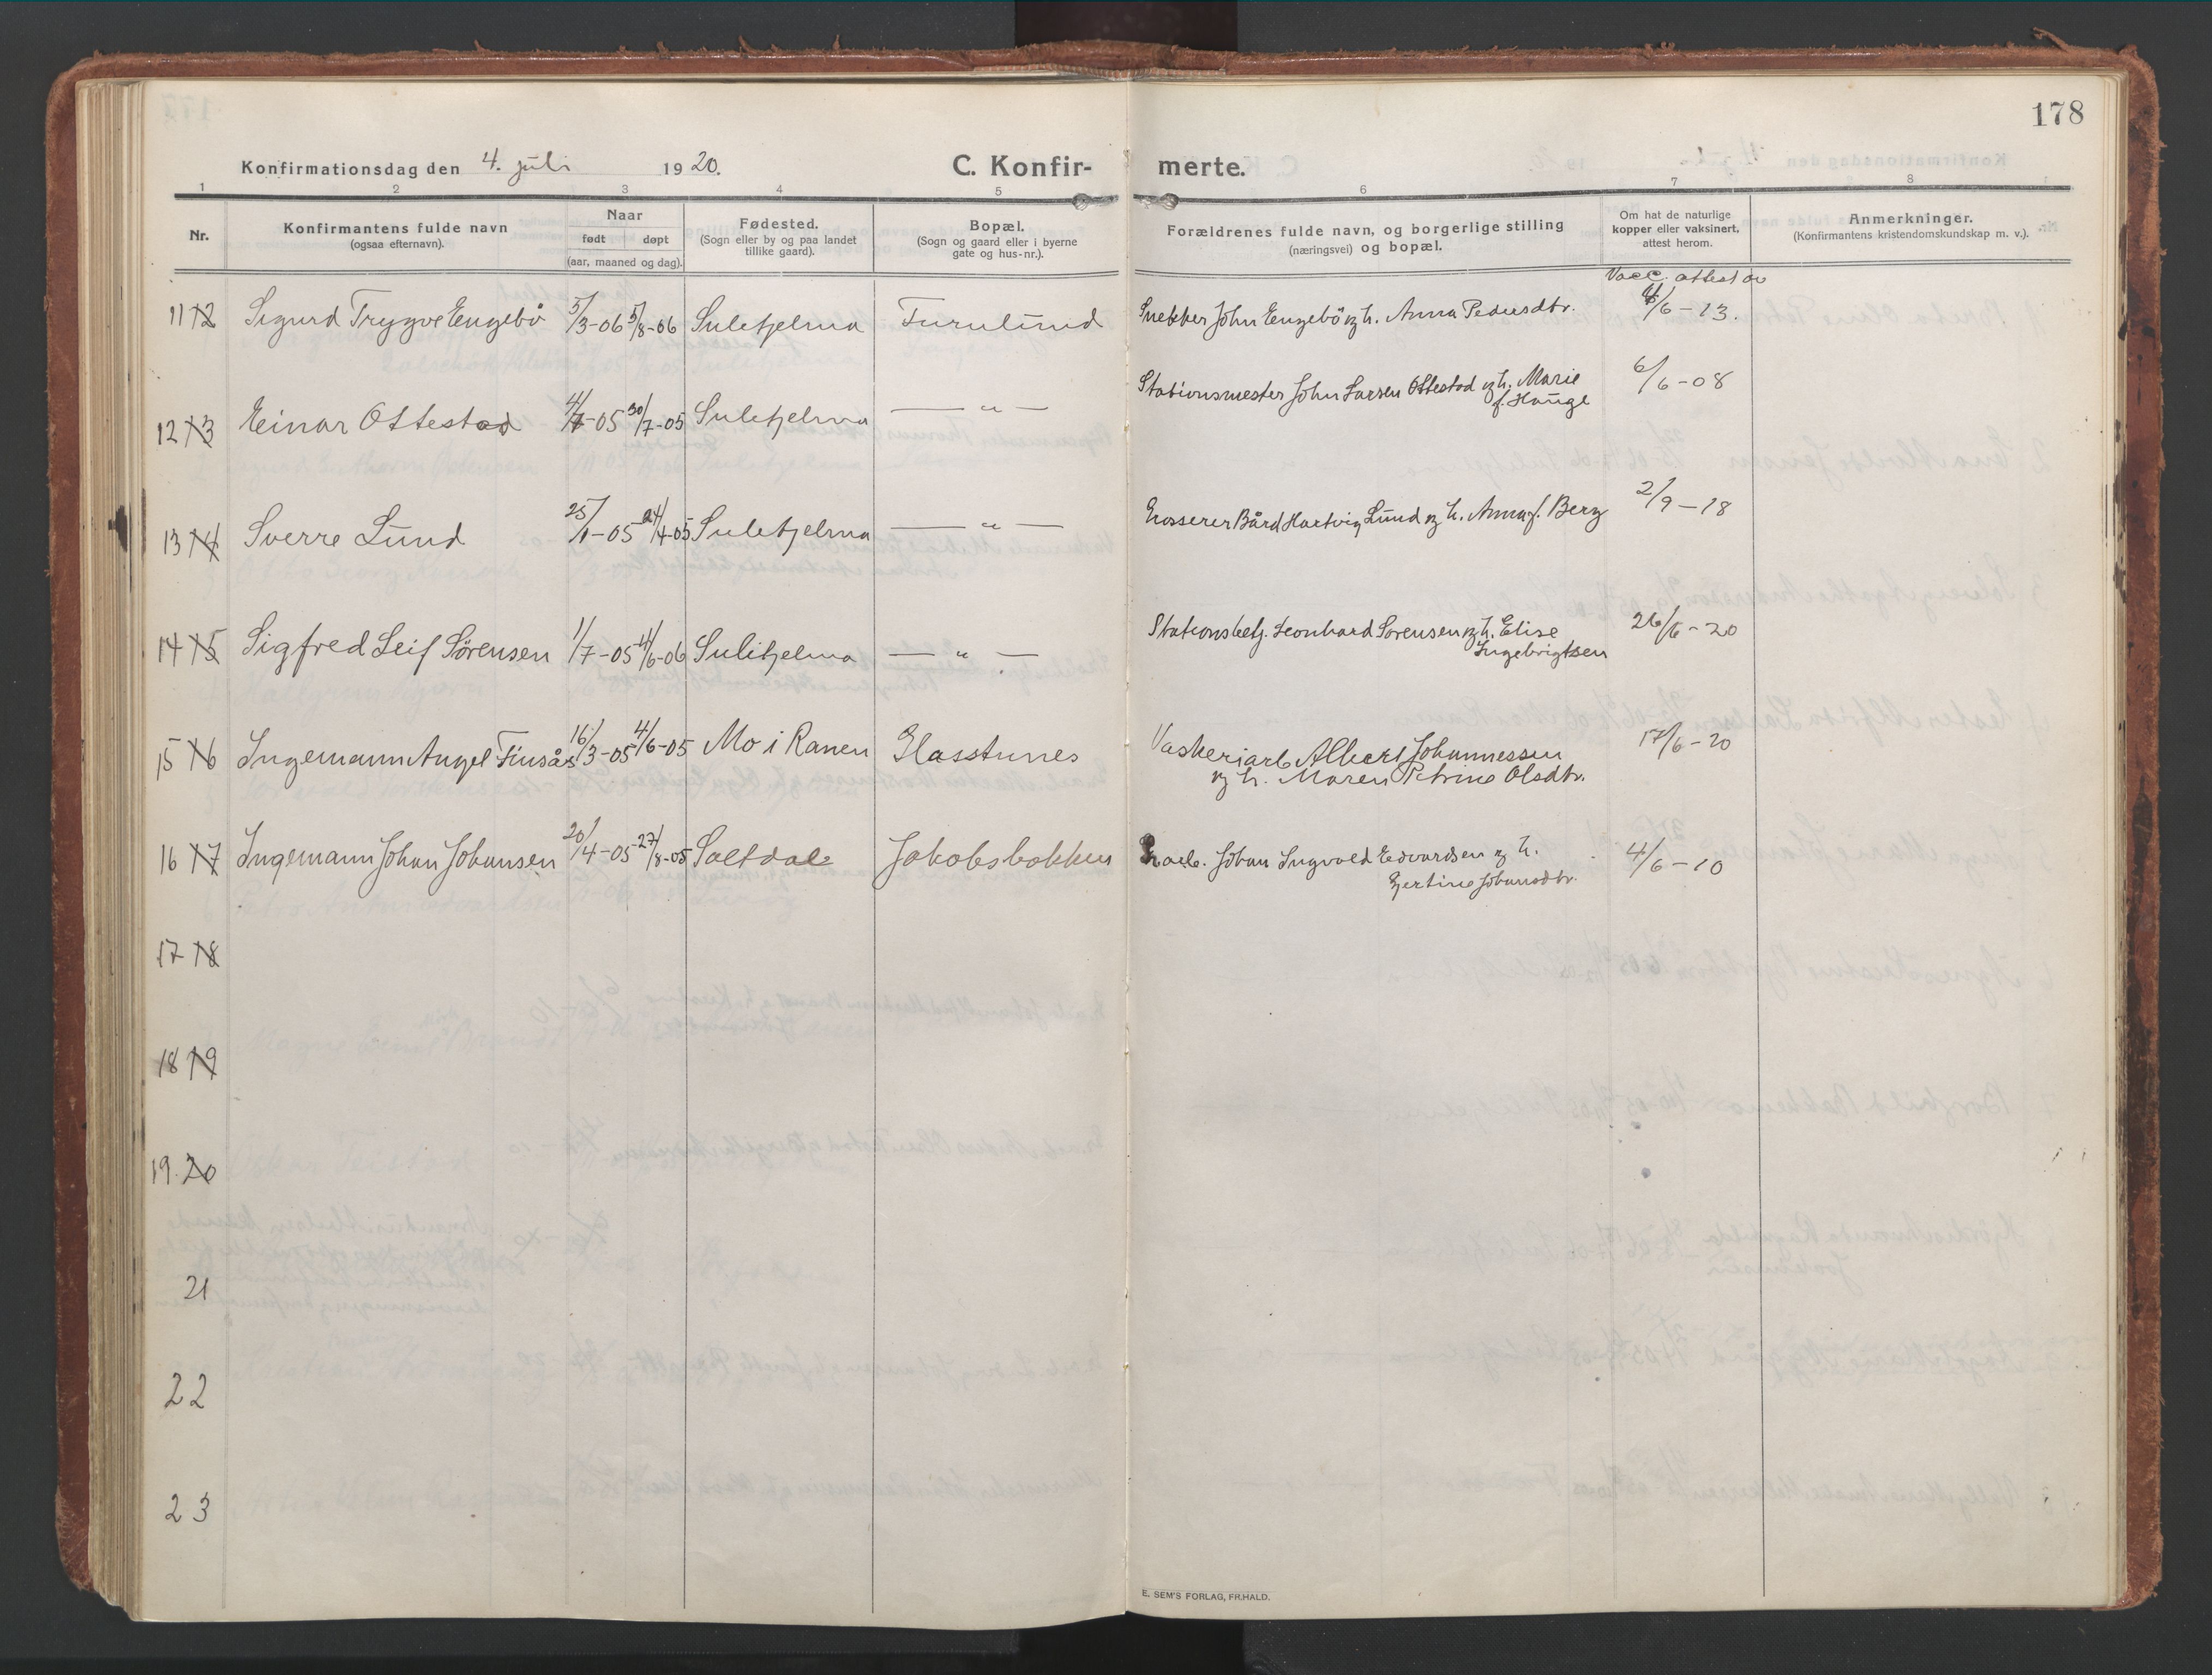 178
Konfirmationsdag den 4. juli 1920.
C. Konfirmerte.
1 2 3 4 5 6 7 8
Nr.
Konfirmantens fulde navn
(ogsaa efternavn).
Naar
født døpt
(aar, maaned og dag).
Fødested.
(Sogn eller by og paa landet
tillike gaard).
Bopæl.
(Sogn og gaard eller i byerne
gate og hus-nr.).
Forældrenes fulde navn, og borgerlige stilling
(næringsvei) og bopæl.
Om hat de naturlige
kopper eller vaksinert,
attest herom.
Anmerkninger.
(Konfirmantens kristendomskundskap m. v.).
Vacc. attest av
11 12 Sigurd Trygve Engebø 5/3-06 5/8-06 Sulitjelma Furulund Snekker John Engebø og h. Anna Pedersdtr. /6-13.
12 13 Einar Ottestad 4/-05 30/7-05 Sulitjelma — " — Stationsmester John Larsen Ottestad og h. Marie
f. Hauge 6/6-08
13 14 Sverre Lund 25/1-05 24/4-05 Sulitjelma — " — Grosserer Bård Hartvig Lund og h. Anna f. Berg 2/9-18
14 15 Sigfred Leif Sörensen 1/7-05 4/6-06 Sulitjelma — " — Stationsbetj. Leonhard Sørensen og h. Elise
Ingebrigtsen 26/6-20
15 16 Ingemann Angel Finsås 16/3-05 4/6-05 Mo i Ranen Glasstunes Vaskeriarb Albert Johannessen
og h. Maren Petrine Olsdtr. 17/6-20
16 17 Ingemann Johan Johansen 20/4-05 27/8-05 Saltdal Jakobsbakken Johan Ingvald Edvardsen og h.
Gjertine Johansdtr. 4/6-10
17 18
18 19
19. 20
21
22
23
E. SEM'S FORLAG, FR.HALD.